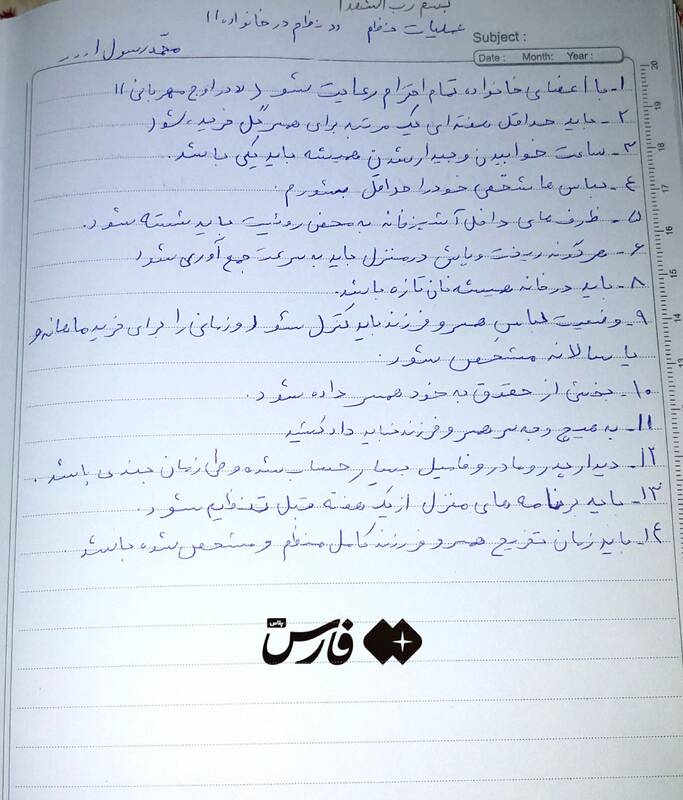 بسم رب الشهدا
عملیات منظم «نظم در خانواده»
محمد رسول
Subject :
Date : Month: Year :
۱- با اعضای خانواده تمام احترام رعایت شود (در اوج مهربانی)
۲- باید حداقل هفته ای یک مرتبه برای همسر گل خریده شود
۳- ساعت خوابیدن و بیدار شدن همیشه باید یکی باشد.
۴- لباس ها شخصی خود را حداقل بشورم.
۵- ظرف های داخل آشپزخانه به محض روئیت باید شسته شود.
۶- هرگونه ریخت و پاش در منزل باید به سرعت جمع آوری شود
۸- باید در خانه همیشه نان تازه باشد.
۹- وضعیت لباس همسر و فرزند باید کنترل شود (و زمانی را برای خرید ماهانه و
یا سالانه مشخص شود.
۱۰- بخشی از حقوق به خود همسر داده شود.
۱۱- به هیچ وجه سر همسر و فرزند نباید داد کشید
۱۲- دیدار پدر و مادر و فامیل بسیار حساب شده و طی زمان بندی باشد.
۱۳- باید برنامه های منزل از یک هفته قبل تنظیم شود.
۱۴- باید زمان تفریح همسر و فرزند کامل منظم و مشخص شده باشد.
فارس پلاس
20
19
18
17
16
15
14
13